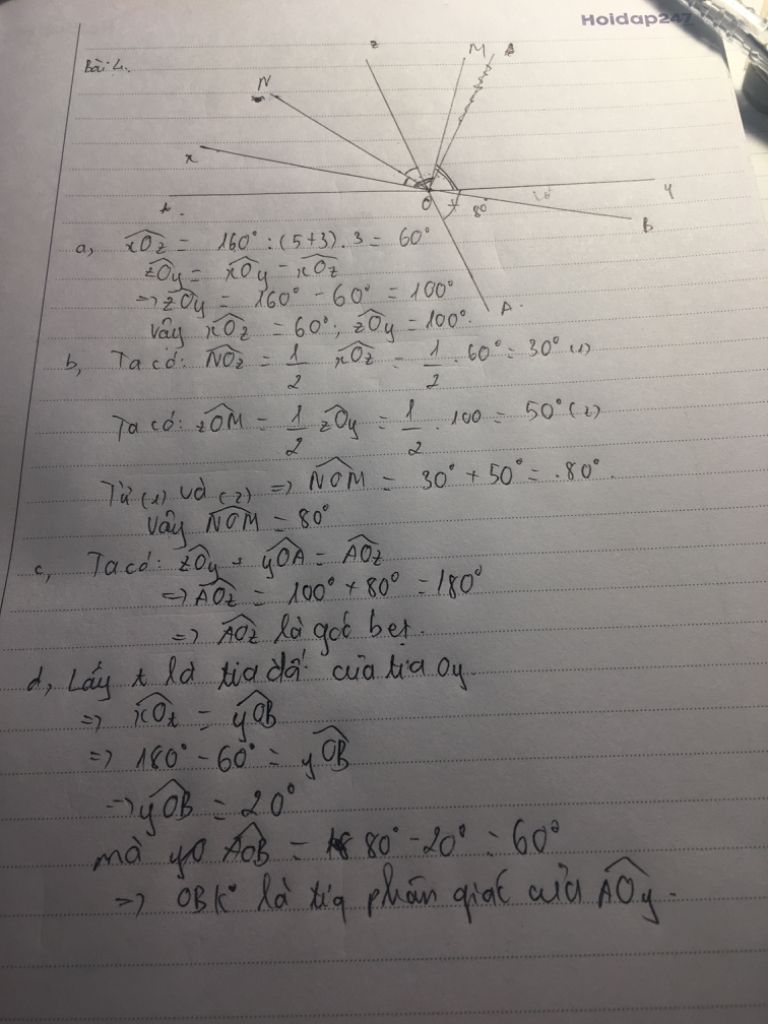 Hoidap247
Bài 4.
z
M
B
N
x
t
O
80°
y
B
A
a, xOz = 160° : (5+3) . 3 = 60°
zOy = xOy - xOz
=> zOy = 160° - 60° = 100°
Vậy xOz = 60°; zOy = 100°.
b, Ta có: NOz = 1/2 xOz = 1/2 . 60° = 30° (1)
Ta có: zOM = 1/2 zOy = 1/2 . 100 = 50° (2)
Từ (1) và (2) => NOM = 30° + 50° = 80°.
Vậy NOM = 80°
c, Ta có: zOy + yOA = AOz
=> AOz = 100° + 80° = 180°
=> AOz là góc bẹt.
d, Lấy t là tia đối của tia Oy.
=> xOt = yOB
=> 180° - 60° = yOB
=> yOB = 20°
mà yO AOB = 80° - 20° = 60°
=> OB k° là tia phân giác của AOy.